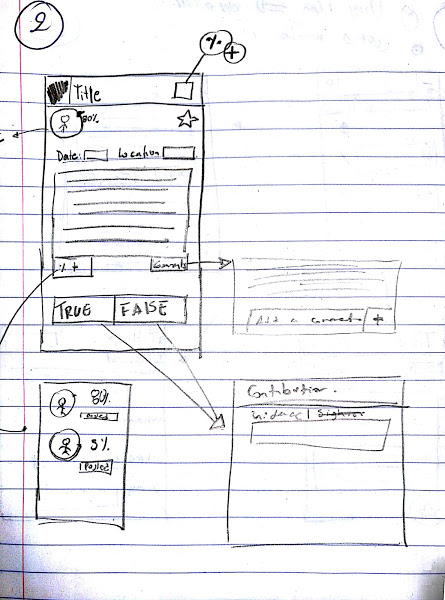 2
% +
Title
80%
Date: Location
% + Comments
TRUE FALSE
Add a comment +
80%
Posted
5%
Posted
Contribution.
Evidence |